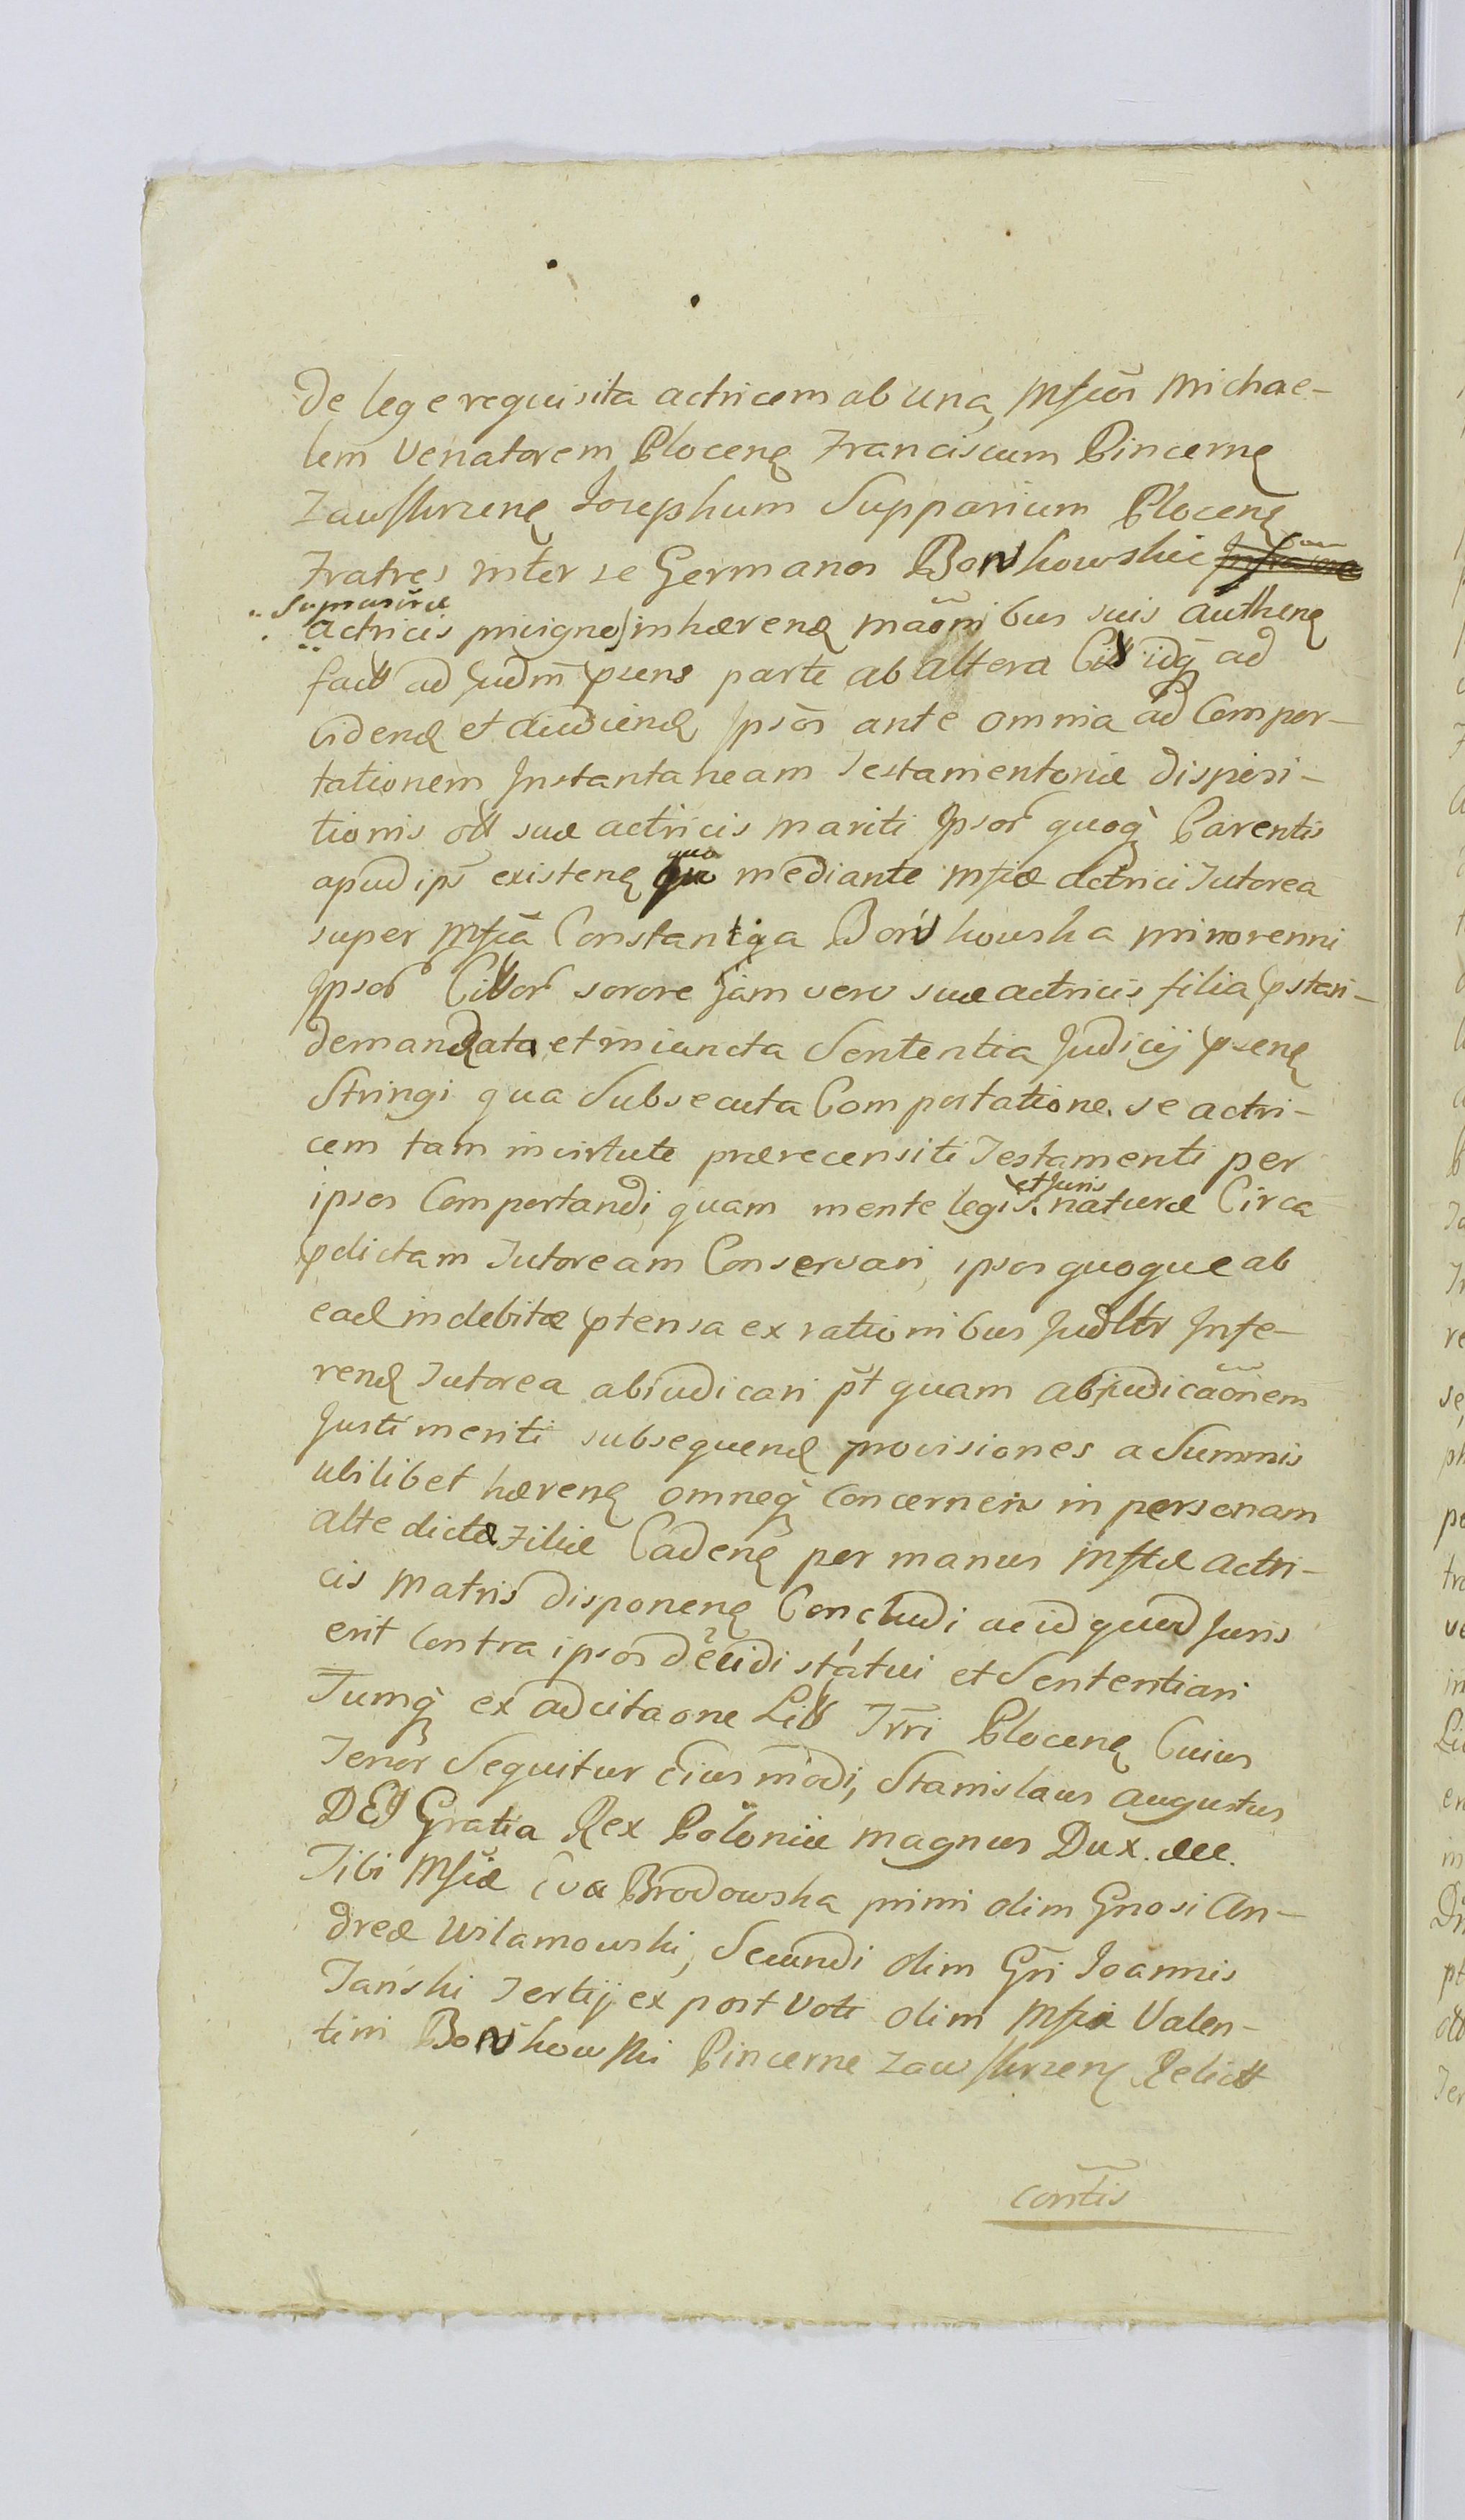 De lege requisita actricem ab una, Mfcos Michae-
lem Venatorem Plocen Franciscum Pincerne
Zawskrzene Josephum Supparium Plocen
Fratres inter se Germanos Bońkowskie
Supranoie
actricis privignos inhæren mãonibus suis authen
fact ad Judm psens parte ab altera Citt idq ad
viden et audien Ipsos ante omnia ad Compor-
tationem Instantaneam Testamentoriæ disposi-
tionis ott suæ actricis mariti Ipsor quoq Parentis
apud ips existen qua mediante Mfcæ actrici Tutorea
super Mfca Constantia Bońkowska minorenni
Ipsor Cittor sorore jam vero suæ actricis filia pstari
demandata et iniuncta Sententia Judicij psen
Stringi qua Subsecuta Comportatione se actri-
cem tam in virtute prærecensiti Testamenti per
et Juris
ipsos Comportandi quam mente legis naturæ Circa
pdictam Tutoream Conservari ipsos quoque ab
ead indebitæ ptensa ex rationibus Judltr Infe-
rend Tutorea abiudicari pt quam abjudicãonem
Justi meriti subsequend provisiones a Summis
ubilibet hæren omneq concernen in personam
alte dictæ Filiæ Caden per manus Mfcæ actri-
cis Matris disponen Concludi ac id quod Juris
erit Contra ipsos decidi statui et Sententiari
Tumq ex adcitaone Litt Trri Plocen Cuius
Tenor Sequitur eiusmodi, Stanislaus Augustus
DEI Gratia Rex Poloniæ Magnus Dux. &&.
Tibi Mfcæ Eva Brodowska primi olim Gnosi An-
dreæ Wilamowski, Secundi olim Gni Joannis
Tański Tertij ex post Voti olim Mfci Valen-
tini Bońkowski Pincerne Zawskrzen Relictt
contis